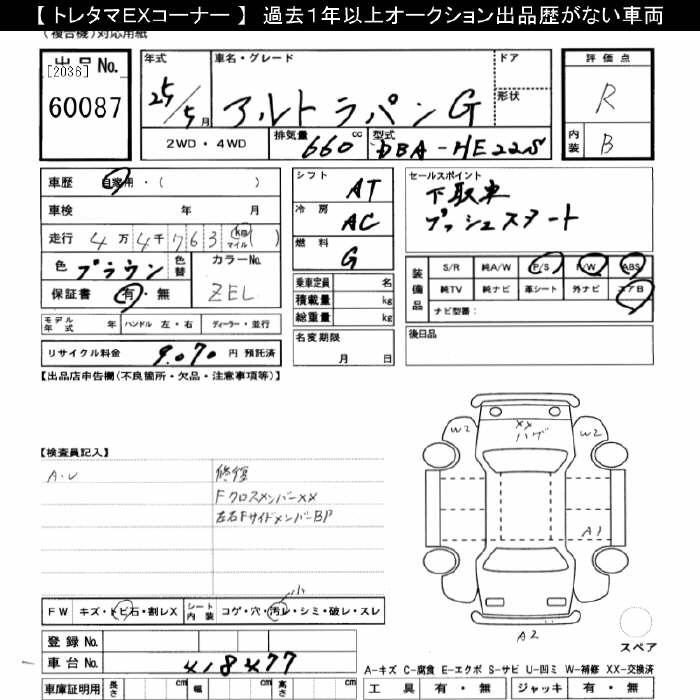 【 トレタマEXコーナー 】 過去1年以上オークション出品歴がない車両
(複合機)対応用紙
出品No.
[2036]
60087
年式
25/5月
車名・グレード
アルトラパンG
ドア
形状
2WD・4WD
排気量 660 cc
型式 DBA-HE22S
評価点
R
内装 B
車歴 自家用・( )
車検 年 月
走行 4万4千763 km マイル ( )
色 ブラウン 色替
カラーNo.
ZEL
保証書 有・無
モデル年式 年 ハンドル 左・右 ディーラー・並行
リサイクル料金 9,070 円 預託済
シフト AT
冷房 AC
燃料 G
乗車定員 名
積載量 kg
総重量 kg
名変期限
月 日
セールスポイント
下取車
プッシュスタート
装備品
S/R 純A/W P/S P/W ABS
純TV 純ナビ 革シート 外ナビ エアB
ナビ型番:
後日品
【出品店申告欄(不良箇所・欠品・注意事項等)】
【検査員記入】
A・U
修復
FクロスメンバーXX
左右FサイドメンバーBP
W2 XX W2
ハゲ
A1
A2
スペア
FW キズ・トビ石・割レX
シート内装 コゲ・穴・汚レ・シミ・破レ・スレ
小
登録No.
車台No. 418477
車庫証明用 長さ cm 幅 cm 高さ cm
A-キズ C-腐食 E-エクボ S-サビ U-凹ミ W-補修 XX-交換済
工具 有・無 ジャッキ 有・無